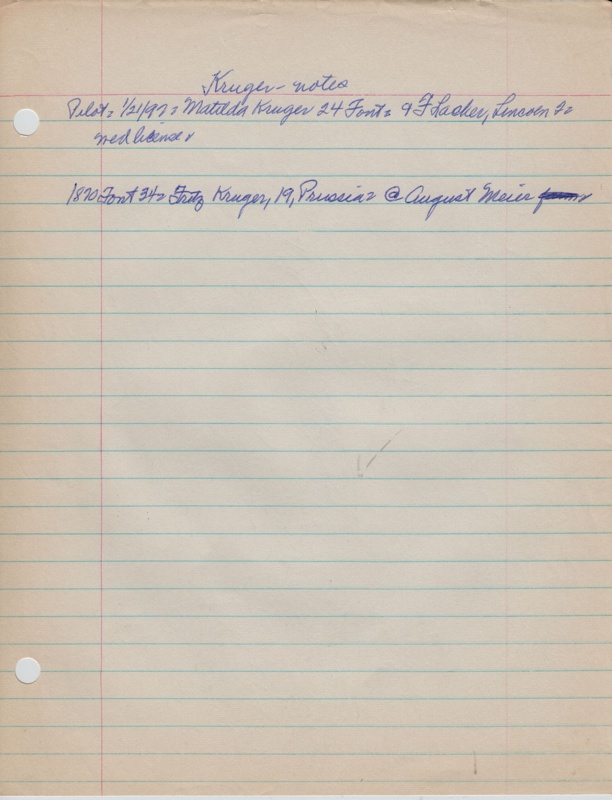 Kruger - notes
Pilot = 1/21/97 = Matilda Kruger 24 Font = & F Lasher, Lincoln Tp
wed license
1870 Font 34 = Fritz Kruger, 19, Prussia = @ August Meier